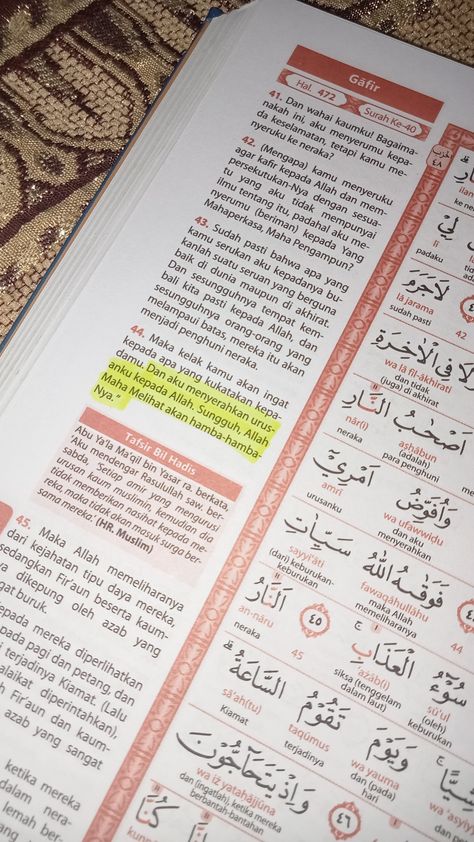 Gāfir
Hal. 472
Surah Ke-40
41. Dan wahai kaumku! Bagaima-
nakah ini, aku menyerumu kepa-
da keselamatan, tetapi kamu me-
nyeruku ke neraka?
42. (Mengapa) kamu menyeruku
agar kafir kepada Allah dan mem-
persekutukan-Nya dengan sesua-
tu yang aku tidak mempunyai
ilmu tentang itu, padahal aku me-
nyerumu (beriman) kepada Yang
Mahaperkasa, Maha Pengampun?
43. Sudah pasti bahwa apa yang
kamu serukan aku kepadanya bu-
kanlah suatu seruan yang berguna
baik di dunia maupun di akhirat.
Dan sesungguhnya tempat kem-
bali kita pasti kepada Allah, dan
sesungguhnya orang-orang yang
melampaui batas, mereka itu akan
menjadi penghuni neraka.
44. Maka kelak kamu akan ingat
kepada apa yang kukatakan kepa-
damu. Dan aku menyerahkan urus-
anku kepada Allah. Sungguh, Allah
Maha Melihat akan hamba-hamba-
Nya."
Tafsir Bil Hadis
Abu Ya'la Ma'qil bin Yasar ra. berkata,
'Aku mendengar Rasulullah saw. ber-
sabda, 'Setiap amir yang mengurusi
urusan kaum muslimin, kemudian dia
tidak memberikan nasihat kepada me-
reka, maka tidak akan masuk surga ber-
sama mereka.' (HR. Muslim)
45. Maka Allah memeliharanya
dari kejahatan tipu daya mereka,
sedangkan Fir'aun beserta kaum-
ya dikepung oleh azab yang
at buruk.
epada mereka diperlihatkan
pada pagi dan petang, dan
terjadinya Kiamat. (Lalu
alaikat diperintahkan),
Fir'aun dan kaum-
azab yang sangat
ketika mereka
dalam nera-
lemah ber-
لِيْٓ
lī
padaku
لَاجَرَمَ
lā jarama
sudah pasti
وَلَا فِى الْاٰخِرَةِ
wa lā fil-ākhirati
dan tidak
(juga) di akhirat
اَصْحٰبُ النَّارِ
aṣḥābun nāri(i)
(adalah) neraka
para penghuni
وَاُفَوِّضُ اَمْرِيْٓ
wa ufawwiḍu amrī
dan aku urusanku
menyerahkan
فَوَقٰىهُ اللّٰهُ سَيِّاٰتِ
fawaqāhullāhu sayyi'āti
maka Allah (dari) keburukan-
memeliharanya keburukan
سُوْۤءُ الْعَذَابِ ٤٥ اَلنَّارُ
sū'ul 'ażāb(i) 45 an-nāru
(oleh) siksa (tenggelam neraka
keburukan dalam laut)
وَيَوْمَ تَقُوْمُ السَّاعَةُ
wa yauma taqūmus sā'ah(tu)
dan (pada) terjadinya Kiamat
hari
٤٦ وَاِذْ يَتَحَاۤجُّوْنَ
wa iż yataḥājjūna
dan (ingatlah), ketika mereka
berbantah-bantahan
كُنَّا